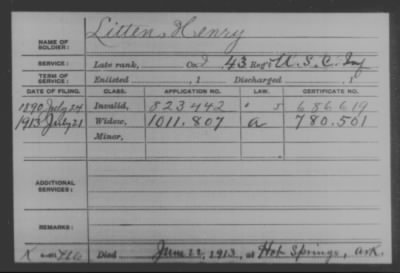 NAME OF SOLDIER: Litten, Henry
SERVICE: Late rank, Co. I, 43 Reg't U.S.C. Inf
TERM OF SERVICE: Enlisted , 1 Discharged , 1
DATE OF FILING. CLASS. APPLICATION NO. LAW. CERTIFICATE NO.
1890 July 24 Invalid, 823442 " 686619
1913 July 21 Widow, 1011.807 a 780.501
Minor,
ADDITIONAL SERVICES:
REMARKS:
Died June 22, 1913, at Hot Springs, Ark.